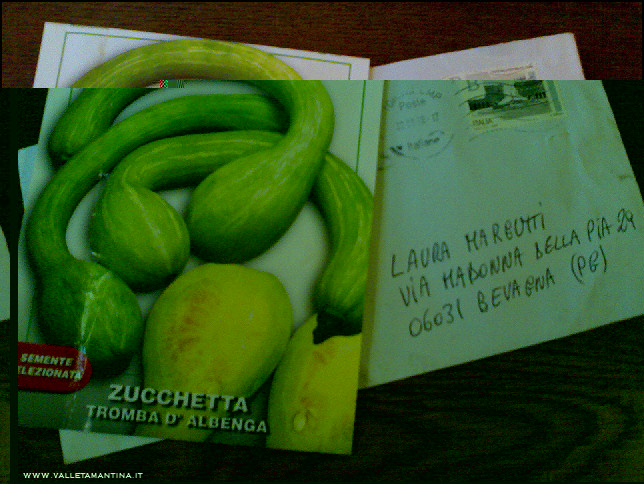 SEMENTE
SELEZIONATA
ZUCCHETTA
TROMBA D' ALBENGA
Poste
Italiane
ITALIA
LAURA MARBUTTI
VIA MADONNA DELLA PIA 29
06031 BEVAGNA (PG)
WWW.VALLETAMANTINA.IT